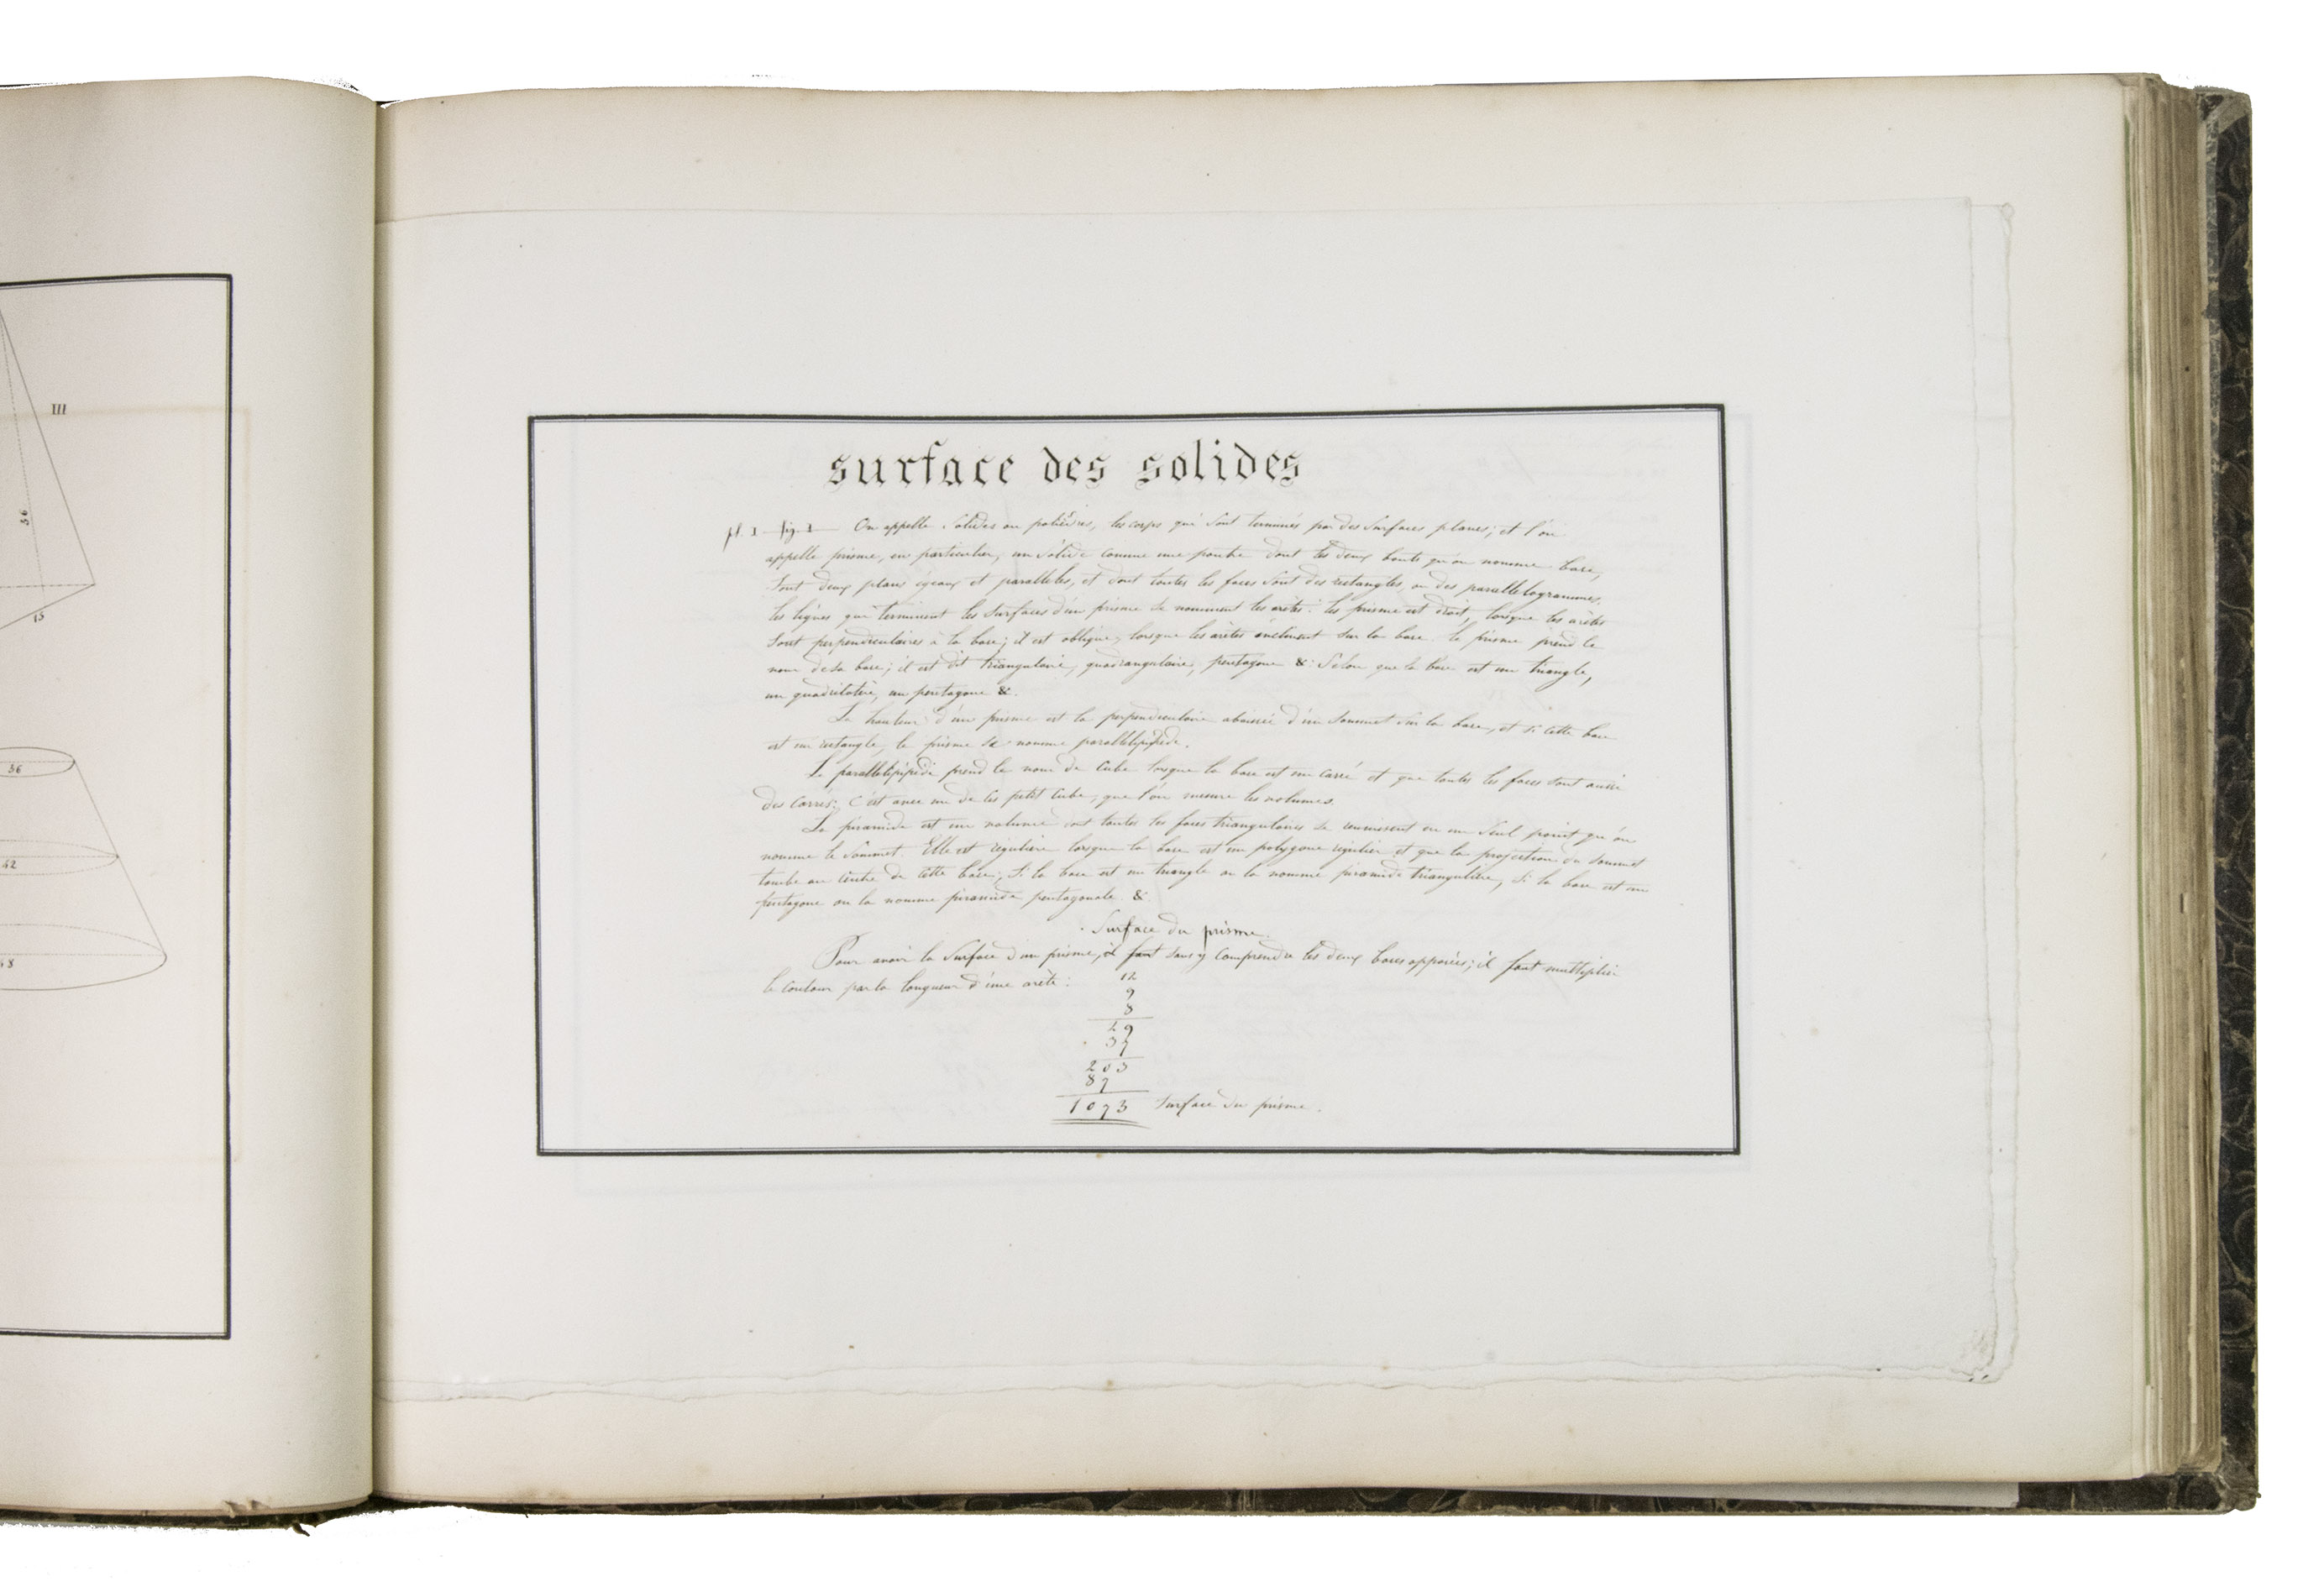 III
36
15
36
42
48
surface des solides
pl. 1 fig. 1 On appelle Solides ou polièdres, les corps qui Sont terminés par des Surfaces planes; et l'on
appelle prisme, en particulier, un Solide comme une poutre dont les deux bouts qu'on nomme base,
Sont deux plans égeaux et paralleles, et dont toutes les faces Sont des rectangles, ou des parallelogrammes.
les lignes qui terminent les Surfaces d'un prisme se nomment les arètes: les prisme est droit, lorsque les arètes
Sont perpendiculaires à la base; il est oblique, lorsque les arètes inclinent Sur la base. le prisme prend le
nom de sa base; il est dit triangulaire, quadrangulaire, pentagone &. Selon que la base est un triangle,
un quadrilatère, un pentagone &.
La hauteur d'un prisme est la perpendiculaire abaissée d'un Sommet Sur la base, et Si cette base
est un rectangle, le prisme se nomme parallelipipède.
Le parallelipipède prend le nom de Cube lorsque la base est un Carré et que toutes les faces sont aussi
des Carrés; C'est avec un de ces petit Cube, que l'on mesure les volumes.
La piramide est un volume dont toutes les faces triangulaires se reunissent en un Seul point qu'on
nomme le Sommet. Elle est régulière lorsque la base est un polygone régulier et que la projection du Sommet
tombe au centre de cette base; Si la base est un triangle on la nomme piramide triangulière, Si la base est un
pentagone on la nomme piramide pentagonale &.
Surface du prisme.
Pour avoir la Surface d'un prisme, il faut sans y Comprendre les deux bases opposées; il faut multiplier
le Contour par la longueur d'une arète:
12
9
8
29
37
203
87
1073 Surface du prisme.